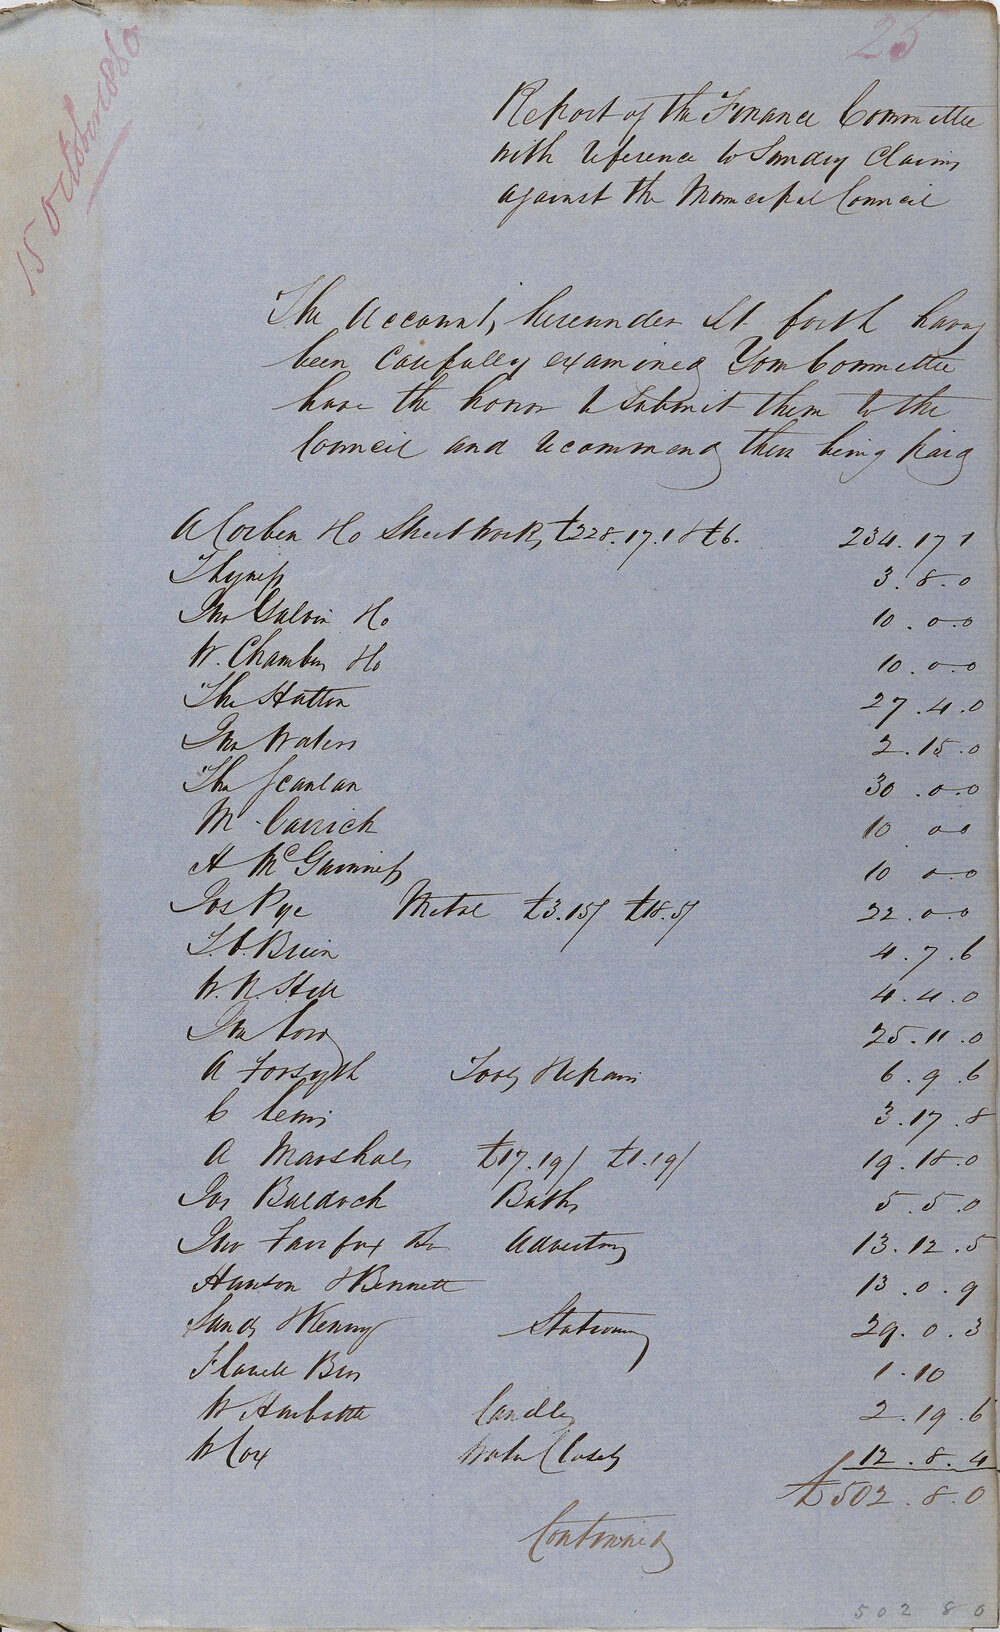 25
15 October 1860
Report of the Finance Committee
with reference to Sundry Claims
against the Municipal Council
The Accounts hereunder set forth having
been carefully examined Your Committee
have the honor to submit them to the
Council and recommend their being paid
A Corben Ho Street Works £228.17.1 & £6. 234.17 1
Thyness 3.8.0
Jno Galvin Ho 10.0.0
W. Chambers Ho 10.0.0
Tho Hatton 27.4.0
Jno Waters 2.15.0
Tho Scanlan 30.0.0
M. Carrick 10 0 0
H McGuinness 10 0.0
Jos Pye Metal £3.15/ £18.5/ 22.0.0
T. O. Brien 4.7.6
W. R. Hill 4.4.0
Jno 25.11.0
A Forsyth Tools & Repairs 6.9.6
C Lewis 3.17.8
A Marshall £17.19/ £1.19/ 19.18.0
Jos Baldock Baths 5.5.0
Jno Fairfax Advertisg 13.12.5
Hanson & Bennett 13.0.9
Sands & Kenny Stationery 29.0.3
Flavell Bros 1.10
W Harbottle Candles 2.19.6
W Cox Water Closets 12.8.4
£502.8.0
Continued
502 8 0